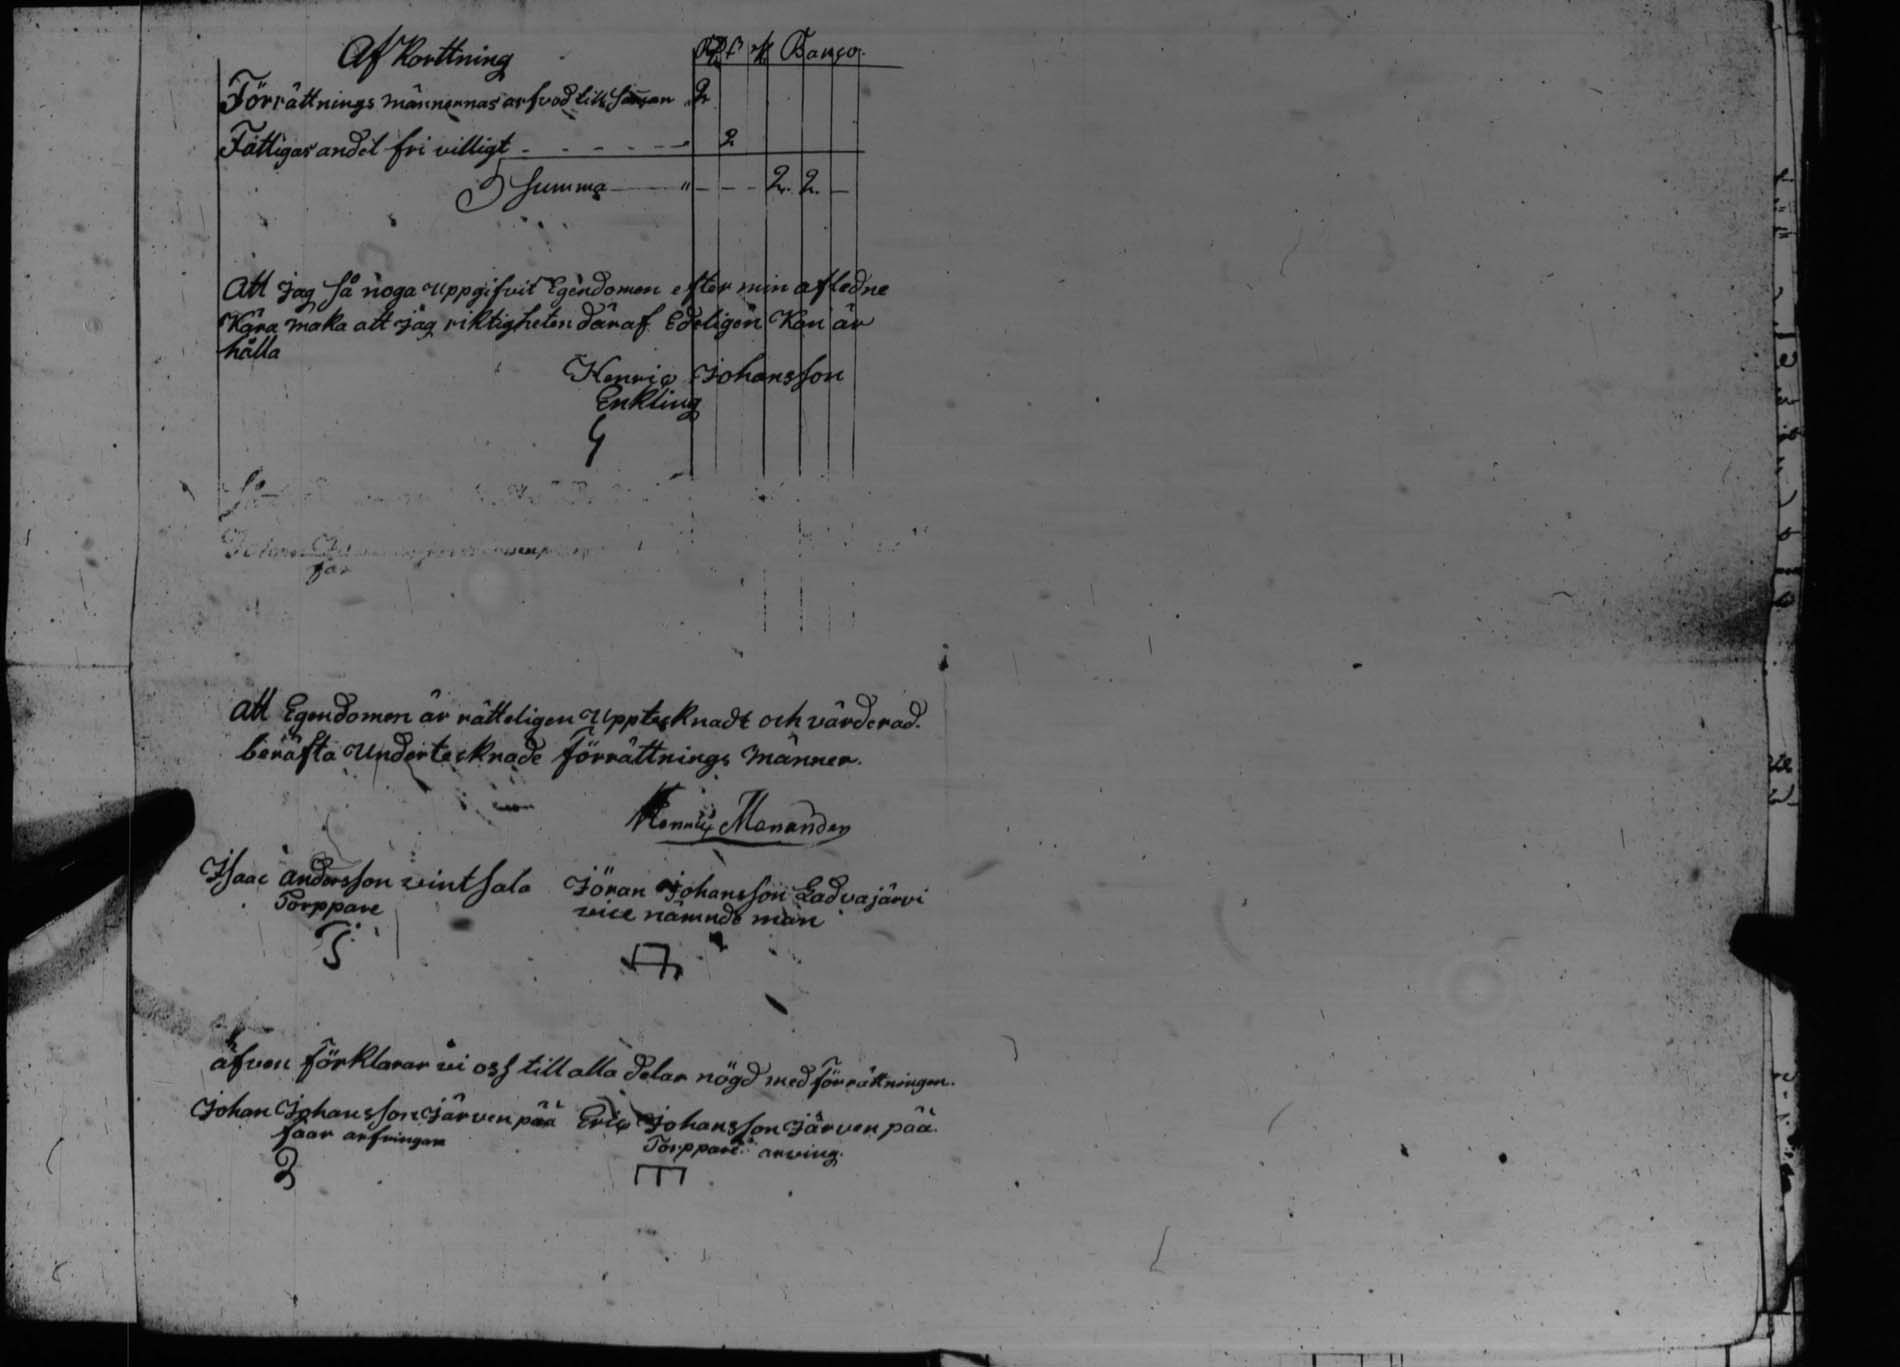 Af Korttning Rd ß rt Banco.
Förrättnings männernas arfvod till samman " 2
Fattigas andel fri villigt - - - - - - 2
Summa —— " - - - 2. 2. —
Att jag så noga uppgifvit Egendomen efter min afledne
Kära maka att jag riktigheten däraf Edeligen Kan är
hålla
Henric Johansson
Enkling
Att Egendomen är rätteligen Upptecknadt och värderad.
beräfta Undertecknade förrättnings Männer.
Henric Menander
Isaac andersson vintsala Jöran Johansson Ladvajärvi
Torppare vice nämnds man
äfven förklarar vi oss till alla delar nögd med förrättningen.
Johan Johansson Järvenpää Eric Johansson Järvenpää.
faar arfvingar Torppare arving.